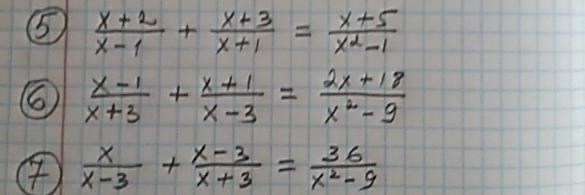 5 (x+2)/(x-1) + (x+3)/(x+1) = (x+5)/(x²-1)
6 (x-1)/(x+3) + (x+1)/(x-3) = (2x+18)/(x²-9)
7 x/(x-3) + (x-3)/(x+3) = 36/(x²-9)